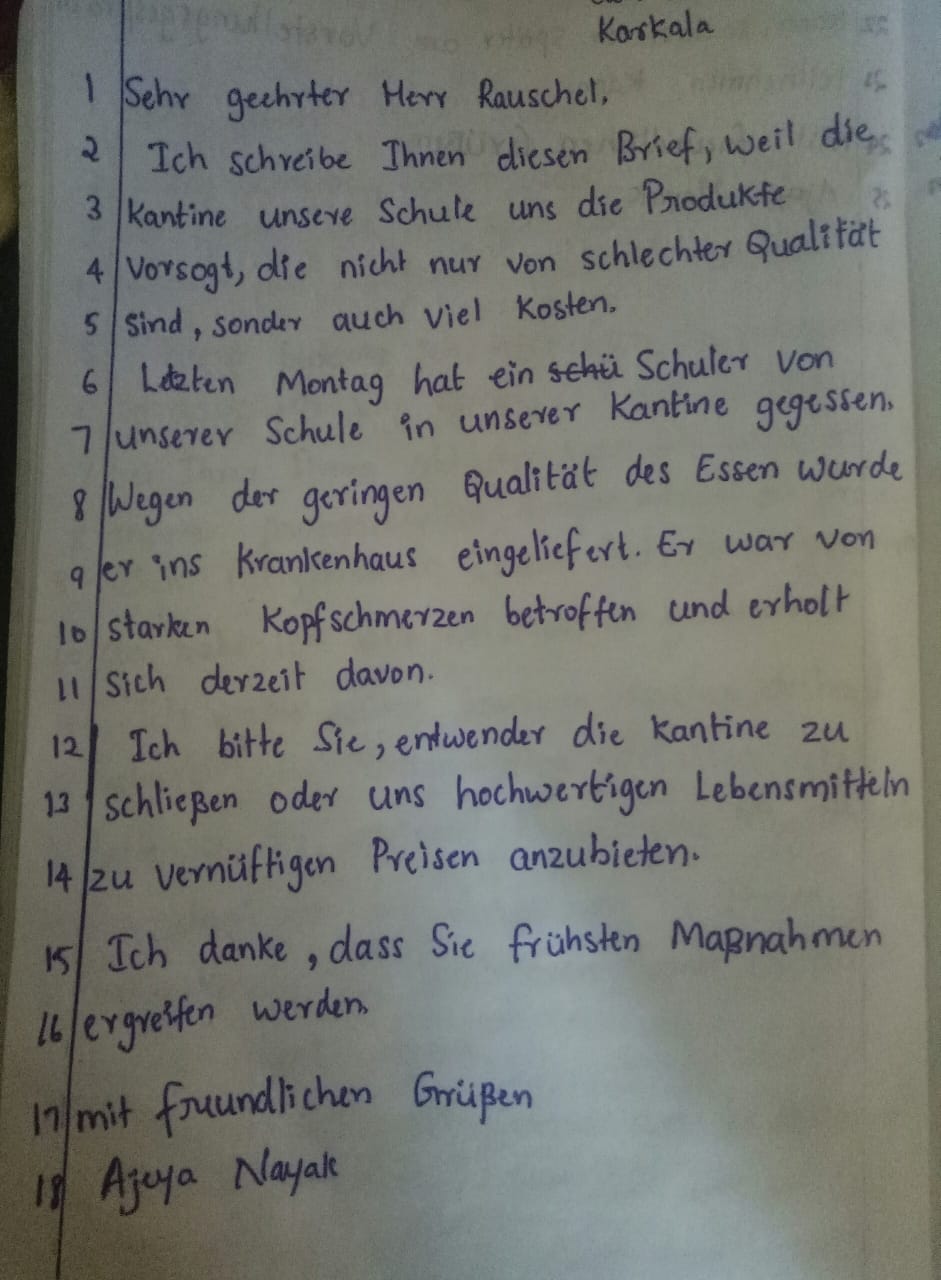 Karkala
1 Sehr geehrter Herr Rauschel,
2 Ich schreibe Ihnen diesen Brief, weil die
3 Kantine unsere Schule uns die Produkte
4 Vorsogt, die nicht nur von schlechter Qualität
5 sind, sonder auch viel Kosten.
6 Letzten Montag hat ein schü Schuler von
7 unserer Schule in unserer Kantine gegessen.
8 Wegen der geringen Qualität des Essen wurde
9 er ins Krankenhaus eingeliefert. Er war von
10 starken Kopfschmerzen betroffen und erholt
11 Sich derzeit davon.
12 Ich bitte Sie, entwender die Kantine zu
13 schließen oder uns hochwertigen Lebensmitteln
14 zu vernüftigen Preisen anzubieten.
15 Ich danke, dass Sie frühsten Maßnahmen
16 ergreifen werden.
17 mit freundlichen Grüßen
18 Ajeya Nayak